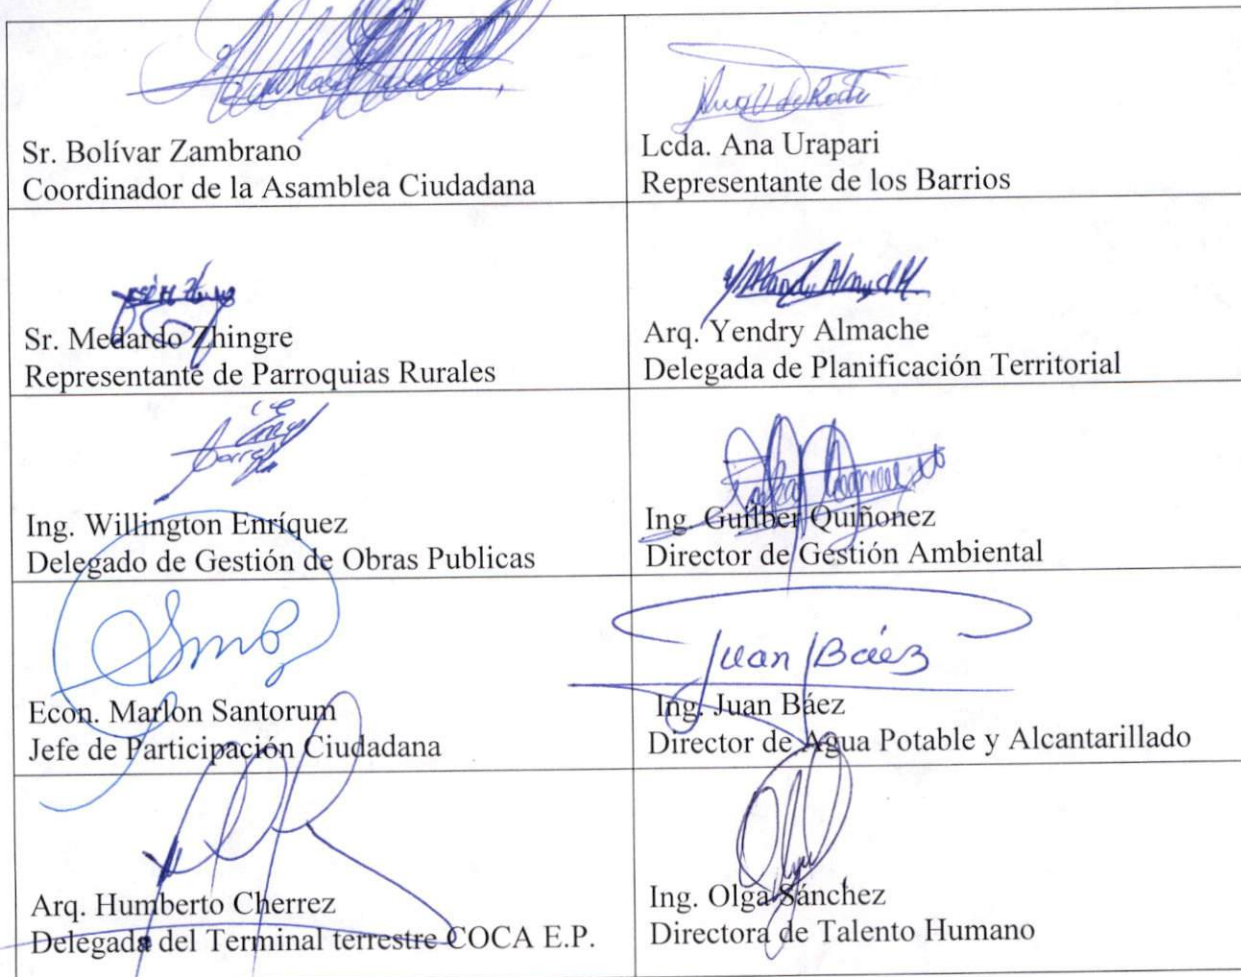 Sr. Bolívar Zambrano
Coordinador de la Asamblea Ciudadana
Lcda. Ana Urapari
Representante de los Barrios
Sr. Medardo Zhingre
Representante de Parroquias Rurales
Arq. Yendry Almache
Delegada de Planificación Territorial
Ing. Willington Enríquez
Delegado de Gestión de Obras Publicas
Ing. Guilber Quiñonez
Director de Gestión Ambiental
Econ. Marlon Santorum
Jefe de Participación Ciudadana
Juan Báez
Ing. Juan Báez
Director de Agua Potable y Alcantarillado
Arq. Humberto Cherrez
Delegada del Terminal terrestre COCA E.P.
Ing. Olga Sánchez
Directora de Talento Humano